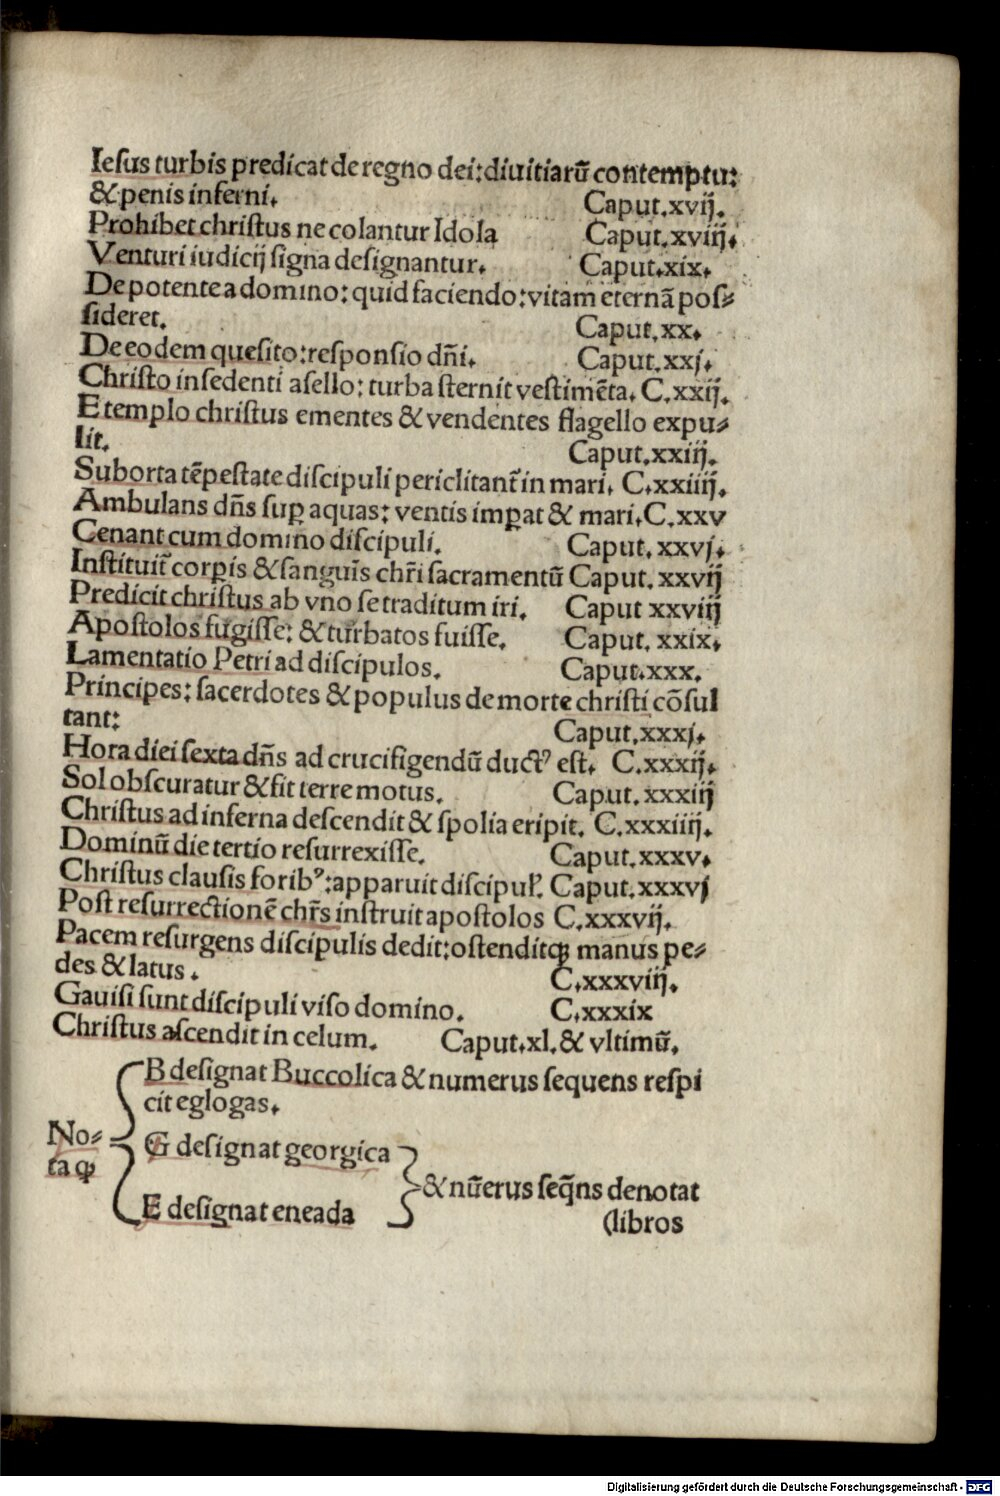 Iesus turbis predicat de regno dei: diuitiarũ contemptu:
& penis inferni. Caput.xvij.
Prohibet christus ne colantur Idola Caput.xviij.
Venturi iudicij signa designantur. Caput.xix.
De potente a domino: quid faciendo: vitam eternã pos⸗
sideret. Caput.xx.
De eodem quesito: responsio dñi. Caput.xxj.
Christo insedenti asello: turba sternit vestimẽta. C.xxij.
E templo christus ementes & vendentes flagello expu⸗
lit. Caput.xxiij.
Suborta tẽpestate discipuli periclitant᷑ in mari. C.xxiiij.
Ambulans dñs suꝑ aquas: ventis imꝑat & mari.C.xxv
Cenant cum domino discipuli. Caput.xxvj.
Instituit᷑ corꝑis & sanguĩs chr̃i sacramentũ Caput.xxvij
Predicit christus ab vno se traditum iri. Caput xxviij
Apostolos fugisse: & turbatos fuisse. Caput.xxix.
Lamentatio Petri ad discipulos. Caput.xxx.
Principes: sacerdotes & populus de morte christi cõsul
tant: Caput.xxxj.
Hora diei sexta dñs ad crucifigendũ ductꝰ est. C.xxxij.
Sol obscuratur & fit terre motus. Caput.xxxiij
Christus ad inferna descendit & spolia eripit. C.xxxiiij.
Dominũ die tertio resurrexisse. Caput.xxxv.
Christus clausis foribꝰ: apparuit discipul̃. Caput.xxxvj
Post resurrectionẽ chr̃s instruit apostolos C.xxxvij.
Pacem resurgens discipulis dedit: ostenditqꝫ manus pe⸗
des & latus. C.xxxviij.
Gauisi sunt discipuli viso domino. C.xxxix
Christus ascendit in celum. Caput.xl.& vltimũ.
B designat Buccolica & numerus sequens respi
cit eglogas.
No⸗
ta ꝙ
G designat georgica
& nũerus seq̃ns denotat
E designat eneada
(libros
Digitalisierung gefördert durch die Deutsche Forschungsgemeinschaft - DFG